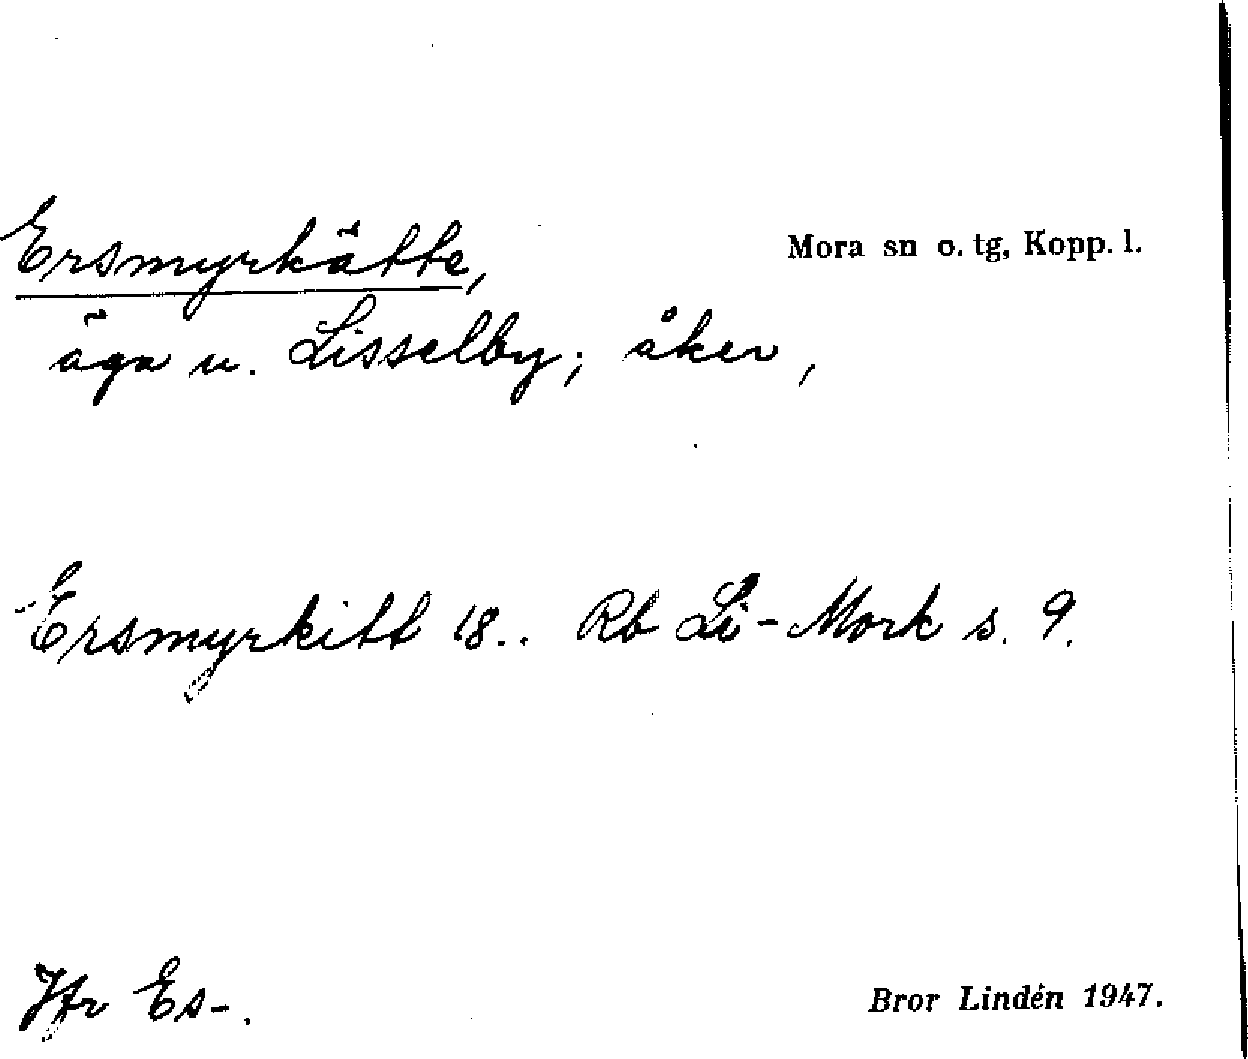 Ersmyrkätte, Mora sn o. tg, Kopp. l.
äga u. Lisselby; åker,
Ersmyrkitt 18.. Rb Li-Mork s. 9.
Jfr Es-.
Bror Lindén 1947.